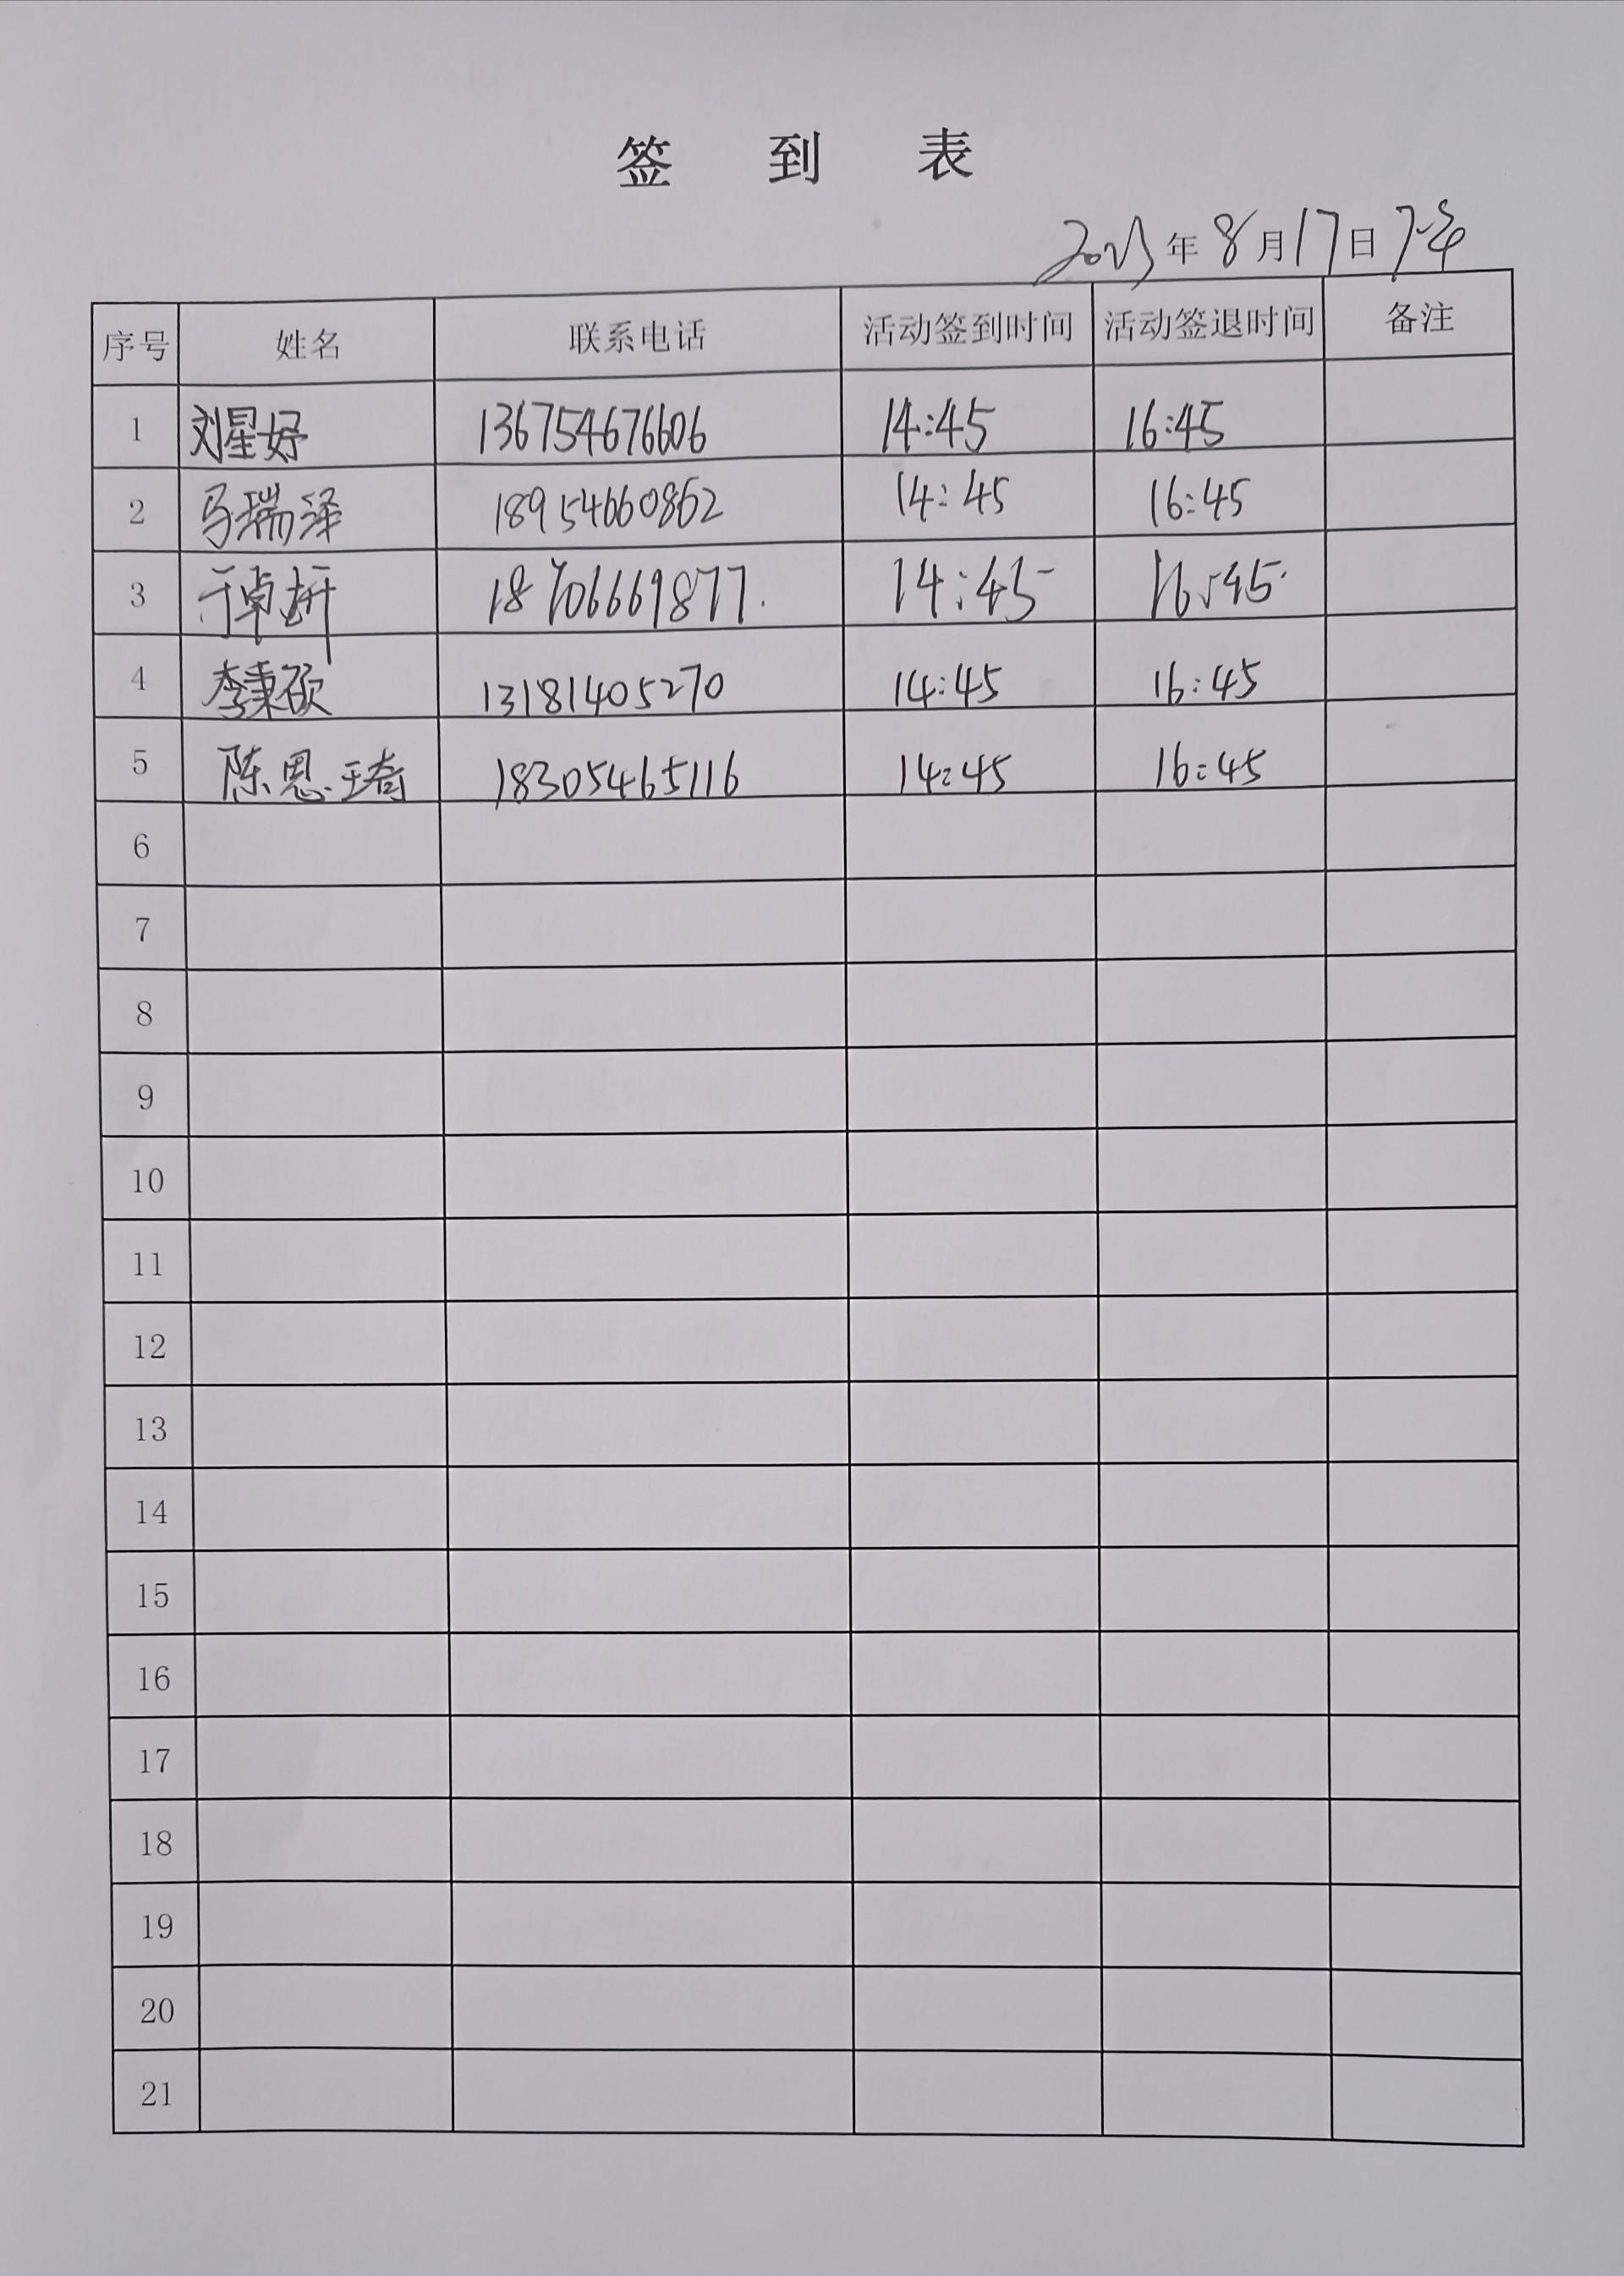 签 到 表
2023年8月17日下午
序号 姓名 联系电话 活动签到时间 活动签退时间 备注
1 刘星妤 136754676606 14:45 16:45
2 马瑞泽 18954660862 14:45 16:45
3 于卓妍 18706669877. 14:45 16:45
4 李秉硕 13181405270 14:45 16:45
5 陈思琦 18305465116 14:45 16:45
6
7
8
9
10
11
12
13
14
15
16
17
18
19
20
21